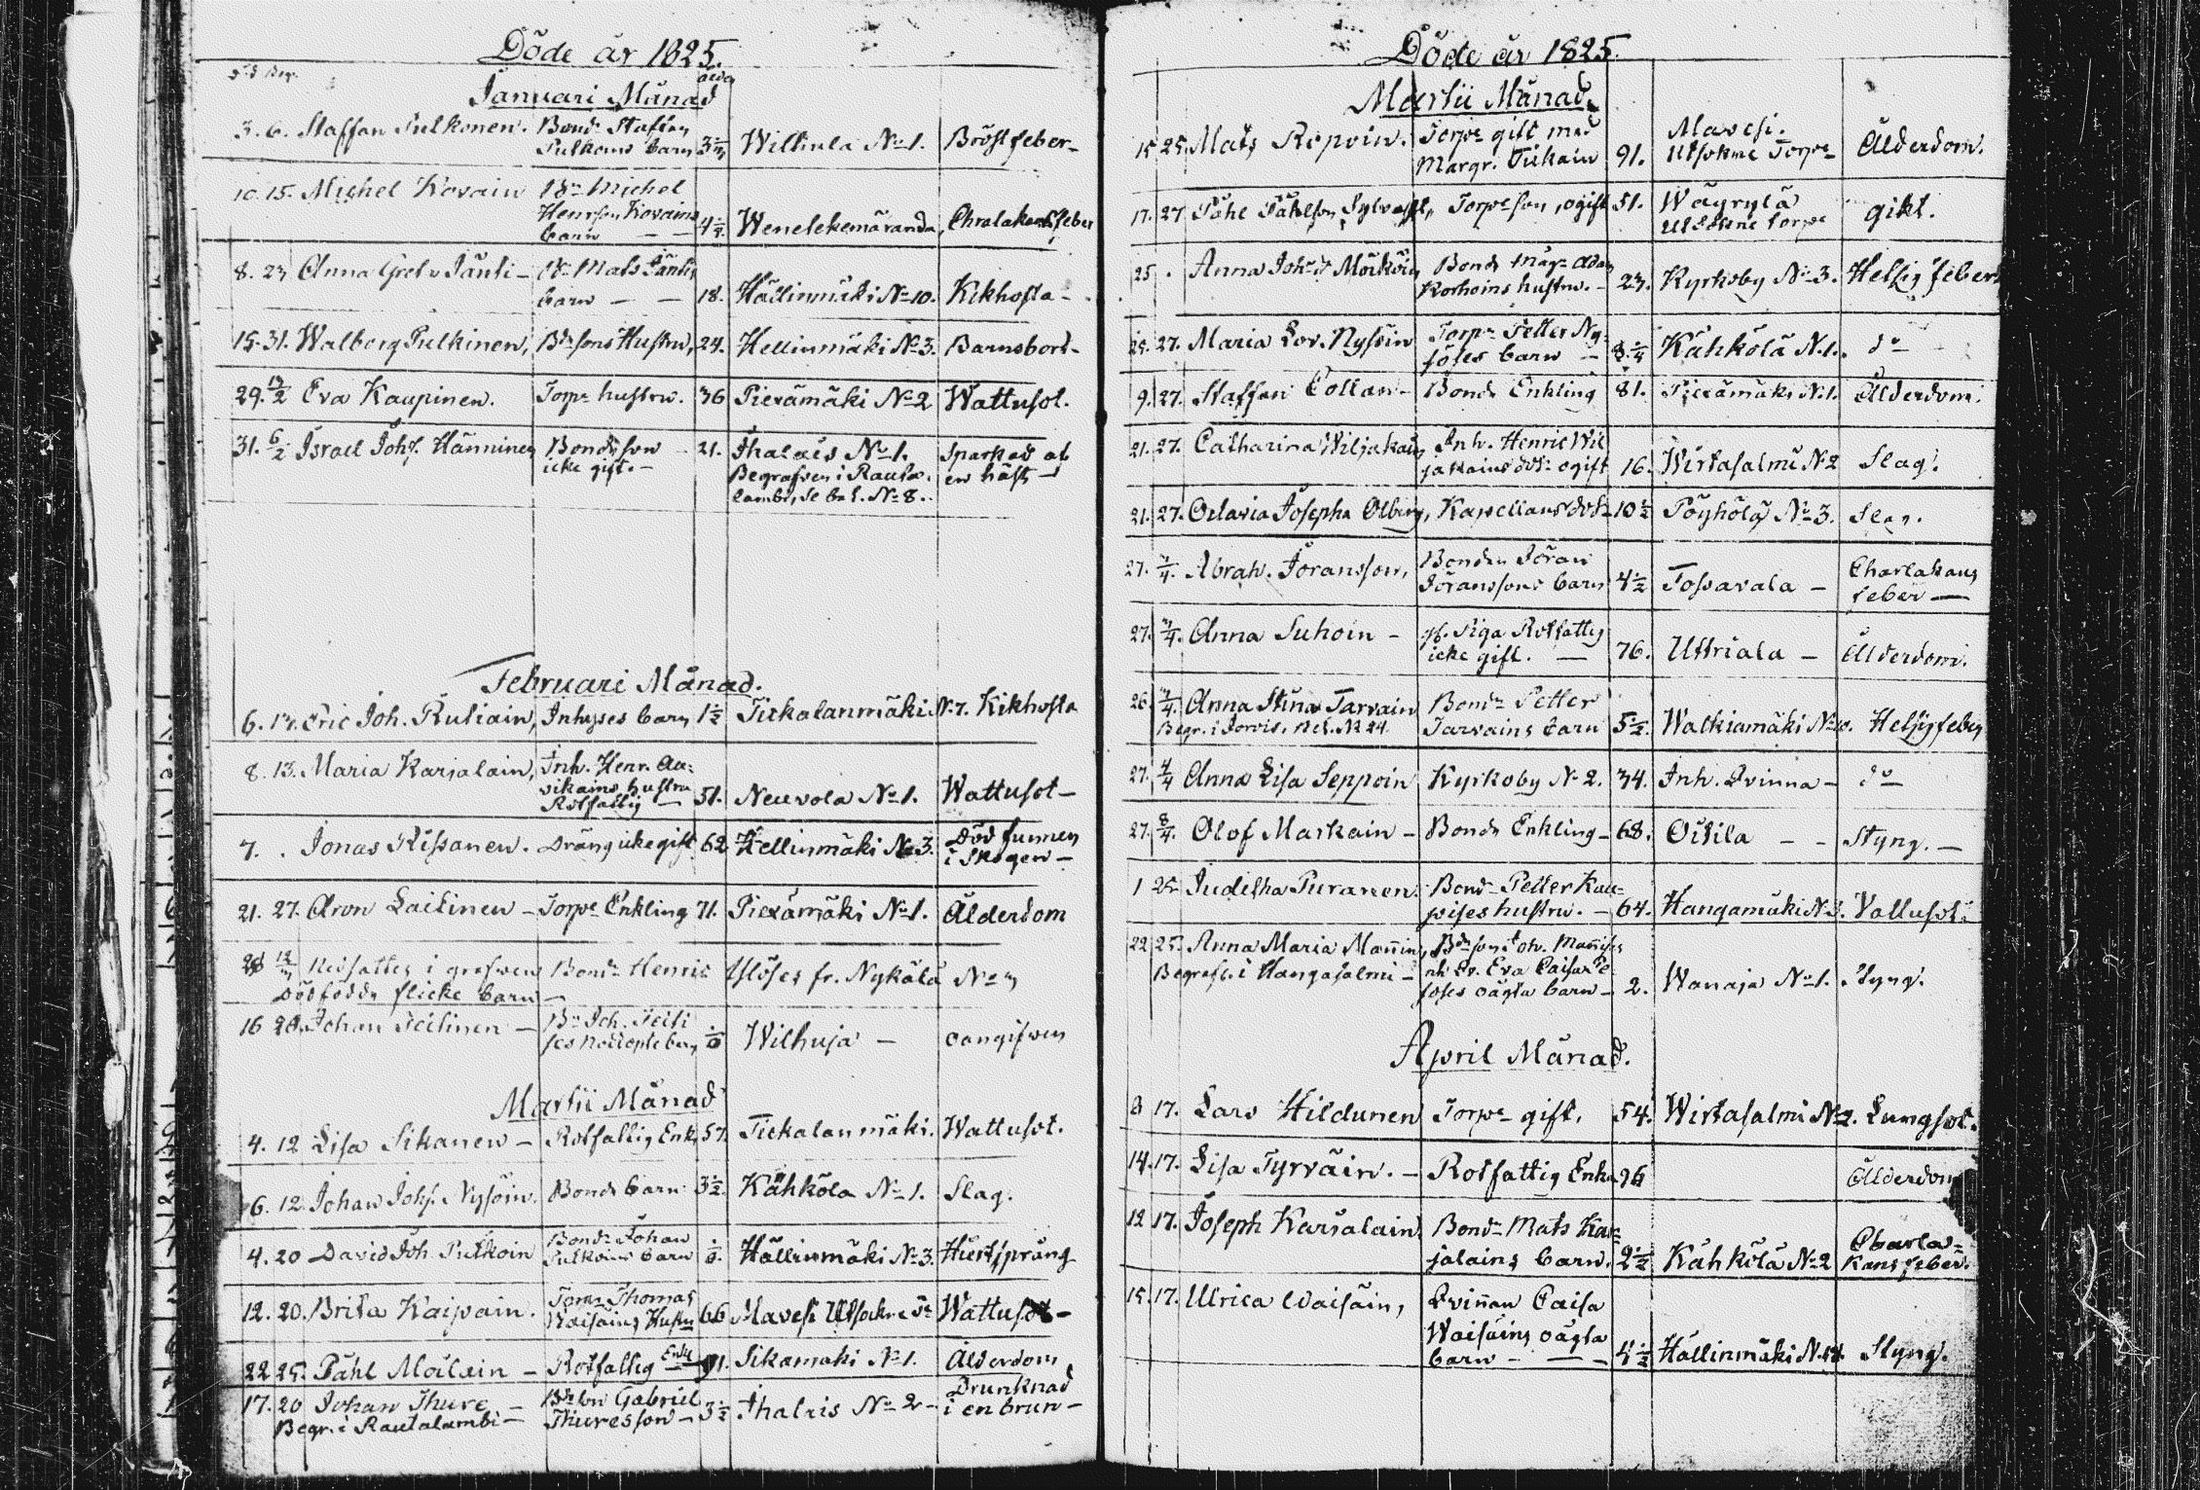 Döde år 1825.
död Begr. ålder
Januari Månad
3. 6. Staffan Pulkonen. Bond: Staffan
Pulkoins barn 3 Wilhula No 1. Bröstfeber
10. 15. Michel Kovain Bd: Michel
Henrsson Kovains
barn Wenetekemäranda, Charlakansfeber
8. 23 Anna Gret: Jänti Bd: Mats Jäntis
barn 18. Hällinmäki No 10. Kikhosta
15. 31. Walborg Pulkinen, Bdesons Hustru, 24. Hellinmäki No 3. Barnsbörd
29. 13/2 Eva Kaupinen. Torp: hustru. 36 Piexämäki No 2 Wattusot.
31. 6/2 Israel Johs. Hänninen Bondeson
icke gift. 21. Ihalais No 1. Sparkad af
Begrafven i Rauta- en häst
lambi, se bet. No 8.
Februari Månad.
6. 13. Eric Joh. Rutiain, Inhyses barn 1 1/2 Tickalanmäki No 7. Kikhosta
8. 13. Maria Karjalain, Inh. Henr. Au-
vikains hustru
Rotfattig 51. Neuvola No 1. Wattusot
7. . Jonas Rissanen. Dräng icke gift 62 Hellinmäki No 3. Död funnen
i Skogen
21. 27. Aron Laitinen Torpe Enkling 71. Piexämäki No 1. Ålderdom
28 13/3 Nedsattes i grafven Bond: Henric Ylöses fr. Nykälä No 3
Dödfödda flicke barn
16 20. Johan Teitinen Bd: Joh. Teiti
ses nödöpte barn Wilhuja oangifven
Martii Månad
4. 12 Lisa Sikanen Rotfattig Enk. 57. Tickalanmäki. Wattusot.
6. 12. Johan Johs. Nysöin. Bonde barn 3 1/2. Kähkölä No 1. Slag.
4. 20 David Joh. Pulkoin Bond: Johan
Pulkoins barn Hällinmäki No 3. Hiertsprång
12. 20. Brita Kaipain. Torp: Thomas
Waisäins Hustru 66 Mavesi Utsockne Wattusot
22 25. Påhl Moilain Rotfattig Enkl 91. Sikamäki No 1. Ålderdom
17. 20 Johan Thure Bdeson Gabriel
Begr. i Rautalambi Thuresson 3 1/2 Ihalais No 2 Drunknad
i en brun
Döde år 1825.
Martii Månad.
15 25. Mats Repoin. Torp: gift med
Margr. Tiikain 91. Mavesi.
Utsokne Torpe Ålderdom.
17. 27. Påhl Påhlson Sylvast, Torpeson, ogift 51. Wäyrylä
Utsokne torpe gikt.
25 . Anna Johs:D: Mörköin Bonde måg: Adam
Korhoins hustru. 23. Kyrkoby No 3. Hetsig feber
25. 27. Maria Lov. Nysöin Torp: Petter Ny-
söses barn Kähkölä No 1. do
9. 27. Staffan Collan Bonde Enkling 81. Piexämäki No 1. Ålderdom.
21. 27. Catharina Wiljakain Inh. Henric Wil
jakains dot: ogift 16. Wirtasalmi No 2 Slag.
21. 27. Octavia Josepha Olberg, Kapellans dot. 10 1/2 Pöyhölä No 3. Slag.
27. Abrah. Joransson, Bonden Joran
Joranssons barn 4 1/2 Tossavala Charlakans
feber
27. Anna Suhoin gl. Piga Rotfattig
icke gift. 76. Uttriala Ålderdom.
26 Anna Stina Tarvain Bond: Petter
Begr. i Jorois. Bet. No 24. Tarvains barn 5 1/2. Walkiamäki No 10. Hetsig feber
27. 4/4 Anna Lisa Seppoin Kyrkoby No 2. 34. Inh. Qvinna do
27. 8/4. Olof Markain Bonde Enkling 68. Oitila Styng.
1 25 Judetha Puranen. Bond: Petter Kau-
pises hustru. 64. Hangamäki No 3. Vattusot.
22 25. Anna Maria Mannin, Bdeson Joh. Mannises
Begrafs. i Hangasalmi och Qv. Eva Caisa
oägta barn 2. Wanaja No 1. Styng.
April Månad.
8 17. Lars Hildunen Torpe gift, 54. Wirtasalmi No 2. Lungsot.
14. 17. Lisa Tyrväin. Rotfattig Enka 96 Ålderdom
12 17. Joseph Karialain. Bond: Mats Kar-
jalains barn. 2 1/2 Kähkölä No 2 Charla-
kans feber.
15. 17. Ulrica Waisäin, Qvinnan Caisa
Waisäins oägta
barn 4 1/2 Hällinmäki No 14. Styng.